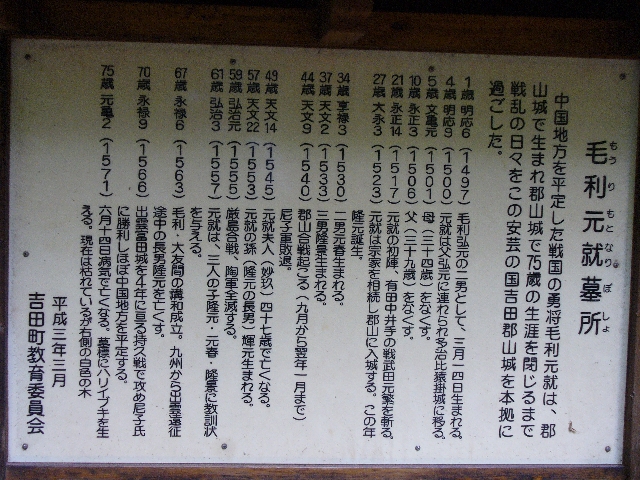 毛利元就墓所
もうりもとなりぼしょ
中国地方を平定した戦国の勇将毛利元就は、郡
山城で生まれ郡山城で75歳の生涯を閉じるまで
戦乱の日々をこの安芸の国吉田郡山城を本拠に
過ごした。
1歳 明応6（1497）毛利弘元の二男として、三月一四日生まれる。
4歳 明応9（1500）元就は父弘元に連れられ多治比猿掛城に移る。
5歳 文亀元（1501）母（三十四歳）をなくす。
10歳 永正3（1506）父（三十九歳）をなくす。
21歳 永正14（1517）元就の初陣、有田中井手の戦武田元繁を斬る。
27歳 大永3（1523）元就は宗家を相続し郡山に入城する。この年
隆元誕生。
34歳 享禄3（1530）二男元春生まれる。
37歳 天文2（1533）三男隆景生まれる。
44歳 天文9（1540）郡山合戦起こる（九月から翌年一月まで）
尼子軍敗退。
49歳 天文14（1545）元就夫人（妙玖）四十七歳で亡くなる。
57歳 天文22（1553）元就の孫（隆元の長男）輝元生まれる。
59歳 弘治元（1555）厳島合戦、陶軍全滅する。
61歳 弘治3（1557）元就は、三人の子隆元・元春・隆景に教訓状
を与える。
67歳 永禄6（1563）毛利・大友間の講和成立。九州から出雲遠征
途中の長男隆元を亡くす。
70歳 永禄9（1566）出雲富田城を4年に亘る持久戦で攻め尼子氏
に勝利しほぼ中国地方を平定する。
75歳 元亀2（1571）六月十四日病気で亡くなる。墓標にハリイブキを生
える。現在は枯れているが右側の白色の木
平成三年三月
吉田町教育委員会